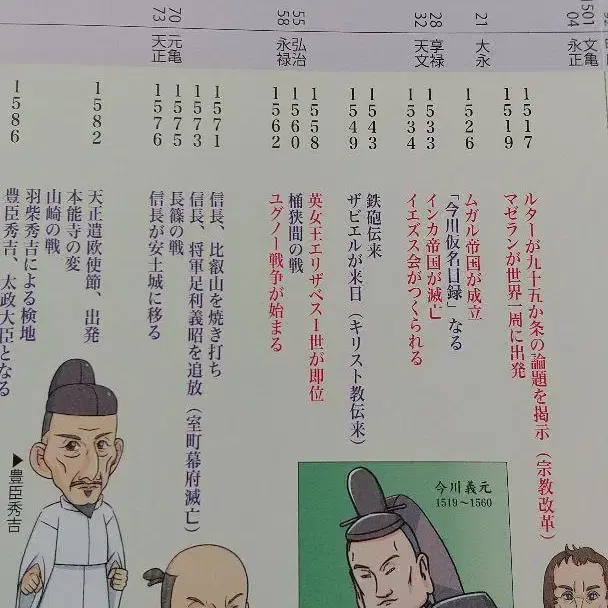 1501 文亀
04 永正
21 大永
28 享禄
32 天文
55 弘治
58 永禄
70 元亀
73 天正
1517 ルターが九十五か条の論題を掲示（宗教改革）
1519 マゼランが世界一周に出発
1526 ムガル帝国が成立
「今川仮名目録」なる
1533 インカ帝国が滅亡
1534 イエズス会がつくられる
1543 鉄砲伝来
1549 ザビエルが来日（キリスト教伝来）
1558 英女王エリザベス1世が即位
1560 桶狭間の戦
1562 ユグノー戦争が始まる
1571 信長、比叡山を焼き打ち
1573 信長、将軍足利義昭を追放（室町幕府滅亡）
1575 長篠の戦
1576 信長が安土城に移る
1582 天正遣欧使節、出発
本能寺の変
山崎の戦
羽柴秀吉による検地
1586 豊臣秀吉、太政大臣となる
今川義元
1519～1560
▶豊臣秀吉